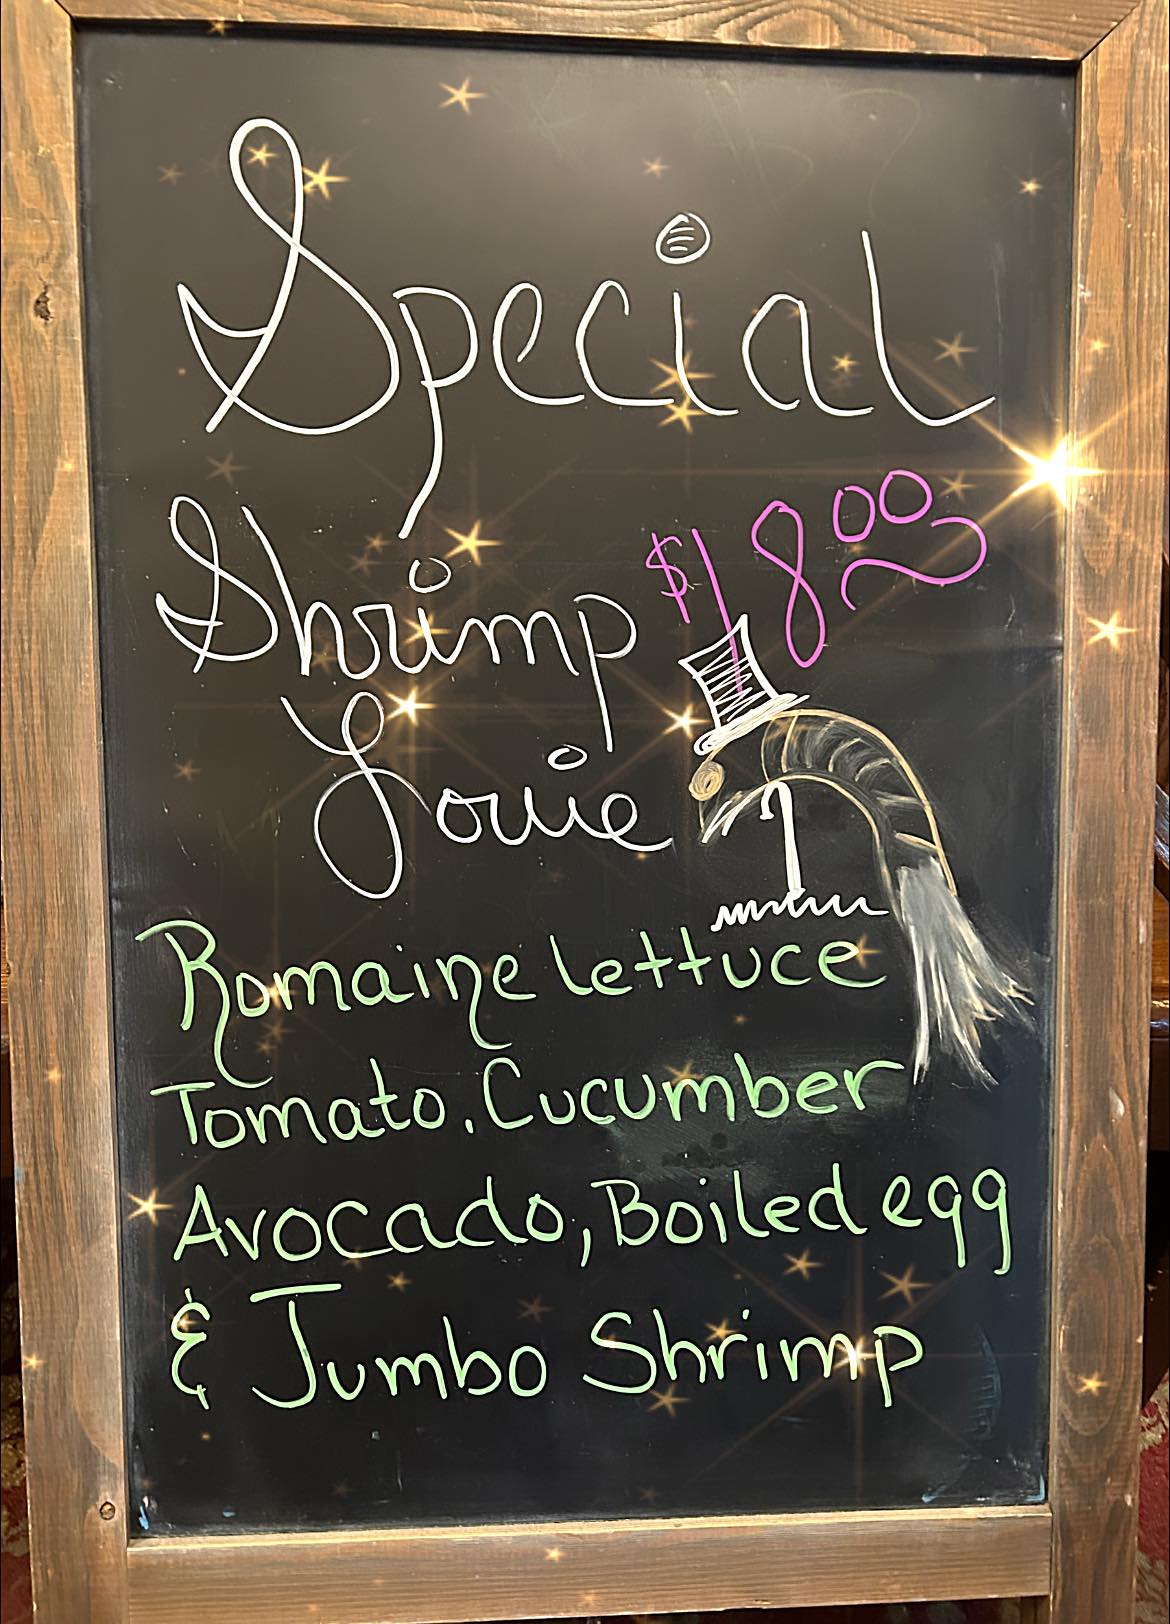 Special
Shrimp $18.00
Louie
Romaine lettuce
Tomato. Cucumber
Avocado, Boiled egg
& Jumbo Shrimp